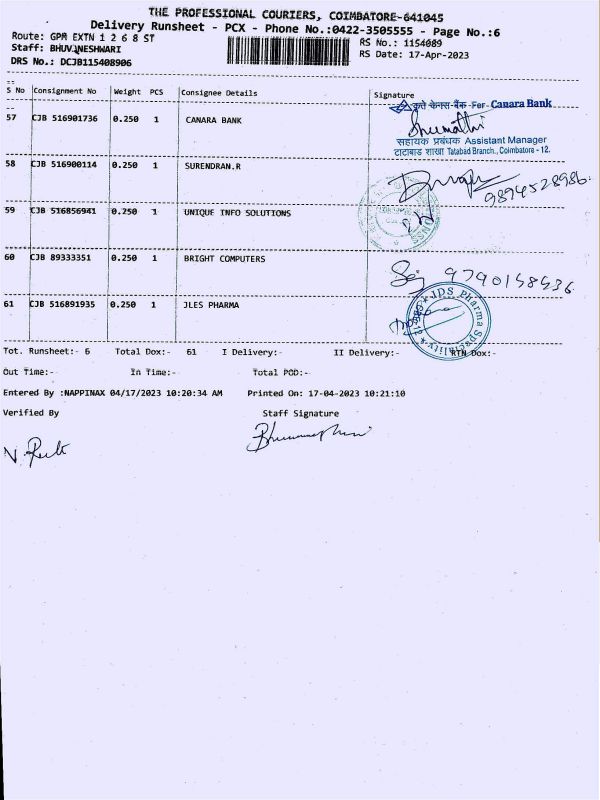 THE PROFESSIONAL COURIERS, COIMBATORE-641045
Delivery Runsheet - PCX - Phone No.:0422-3505555 - Page No.:6
Route: GPM EXTN 1 2 6 8 ST
RS No.: 1154089
Staff: BHUVANESHWARI
RS Date: 17-Apr-2023
DRS No.: DCJB115408906
S No Consignment No Weight PCS Consignee Details Signature
57 CJB 516901736 0.250 1 CANARA BANK
कृते केनरा बैंक For Canara Bank
सहायक प्रबंधक Assistant Manager
टाटाबाड शाखा Tatabad Branch., Coimbatore - 12.
58 CJB 516900114 0.250 1 SURENDRAN.R
9894528986
59 CJB 516856941 0.250 1 UNIQUE INFO SOLUTIONS
60 CJB 89333351 0.250 1 BRIGHT COMPUTERS
9790158536
61 CJB 516891935 0.250 1 JLES PHARMA
JDS Pharma Speciality
Tot. Runsheet:- 6 Total Dox:- 61 I Delivery:- II Delivery:- RTN Dox:-
Out Time:-- In Time:-- Total POD:-
Entered By :NAPPINAX 04/17/2023 10:20:34 AM Printed On: 17-04-2023 10:21:10
Verified By Staff Signature